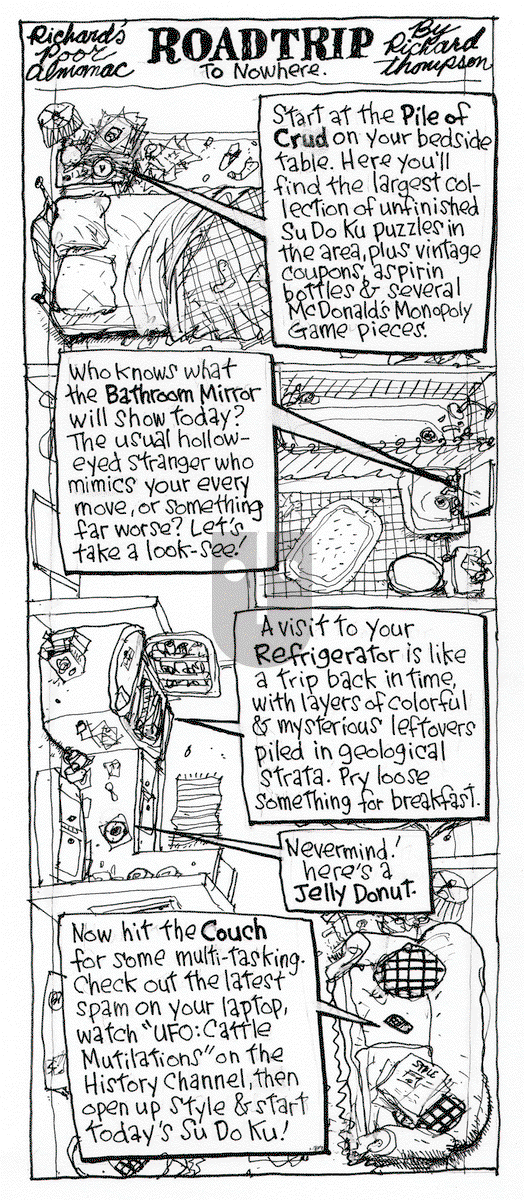 Richard's
Poor
Almanac
ROADTRIP
To Nowhere.
By
Richard
Thompson
Start at the Pile of
Crud on your bedside
table. Here you'll
find the largest col-
lection of unfinished
Su Do Ku puzzles in
the area, plus vintage
coupons, aspirin
bottles & several
McDonald's Monopoly
Game pieces.
Who knows what
the Bathroom Mirror
will show today?
The usual hollow-
eyed stranger who
mimics your every
move, or something
far worse? Let's
take a look-see!
A visit to your
Refrigerator is like
a trip back in time,
with layers of colorful
& mysterious leftovers
piled in geological
strata. Pry loose
something for breakfast.
Nevermind!
here's a
Jelly Donut.
Now hit the Couch
for some multi-tasking.
Check out the latest
spam on your laptop,
watch "UFO: Cattle
Mutilations" on the
History Channel, then
open up Style & start
today's Su Do Ku!
STYLE